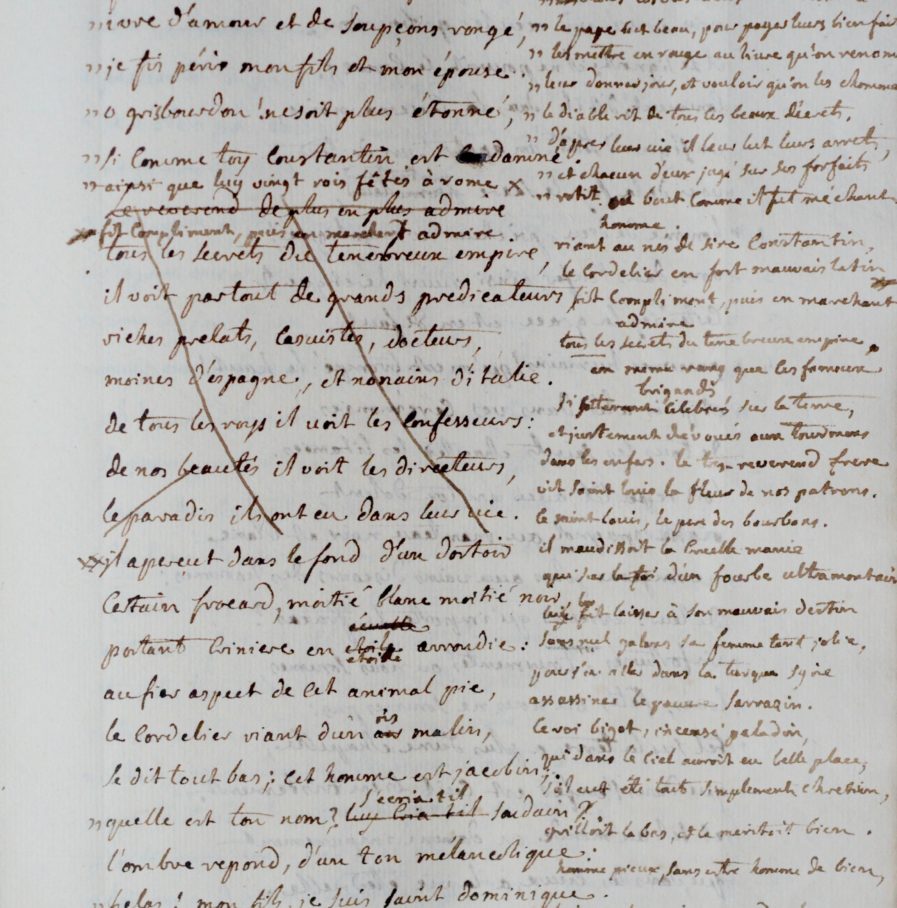 ivre d'amour et de soupçons rongé,
"je fis périr mon fils et mon épouse.
"o grisbourdon! ne soit plus étonné,
"si comme toy Constantin est damné.
"ainsi que luy vingt rois fêtés à rome x
le reverend de plus en plus admire
fit compliment, puis en marchant admire.
tous les secrets du tenebreux empire,
il voit partout de grands predicateurs,
riches prelats, casuistes, docteurs,
moines d'espagne, et nonains d'italie.
de tous les roys il voit les confesseurs:
de nos beautés il voit les directeurs,
le paradis ils ont eu dans leur vie.
il aperçut dans le fond d'un dortoir
certain frocard, moitié blanc moitié noir,
portant criniere en écuelle arrondie:
étoile
au fier aspect de cet animal pie,
le cordelier riant d'un ris malin,
se dit tout bas; cet homme est jacobin;
s'ecria til
"quelle est ton nom? luy cria-til soudain?
l'ombre repond, d'un ton mélancolique:
"helas! mon fils, je suis saint dominique.
"le pape est beau, pour payer leurs bienfait
"les mettre en rouge au livre qu'on renom
"leur donner jour, et vouloir qu'on les chomme
"le diable rit de tous les beaux décrets,
"d'après leur vie il leur lut leurs arrets,
"et chacun d'eux jugé sur ses forfaits
"rotit au bout comme il fut méchant
homme.
riant au nés de sire Constantin,
le cordelier en fort mauvais latin
fit compliment, puis en marchant
admire
tous les secrets du tenebreux empire.
au même rang que les fameux
brigands
si celebrés sur la terre,
et justement dévoués aux tourmens
dans les enfers. le tres reverend frere
vit saint louis la fleur de nos patrons.
le saint louis, le pere des bourbons.
il maudissoit la cruelle manie
qui sur la foi d'un fourbe ultramontain
lui fit laisser à son mauvais destin
sa femme tant jolie,
pour s'en aller dans la turque syrie
assassiner le pauvre sarrazin.
ce roi bigot, insensé paladin,
qui dans le ciel auroit eu belle place,
s'il eut été tout simplement chretien,
grilloit la bas, et le meritoit bien.
homme pieux, sans etre homme de bien,